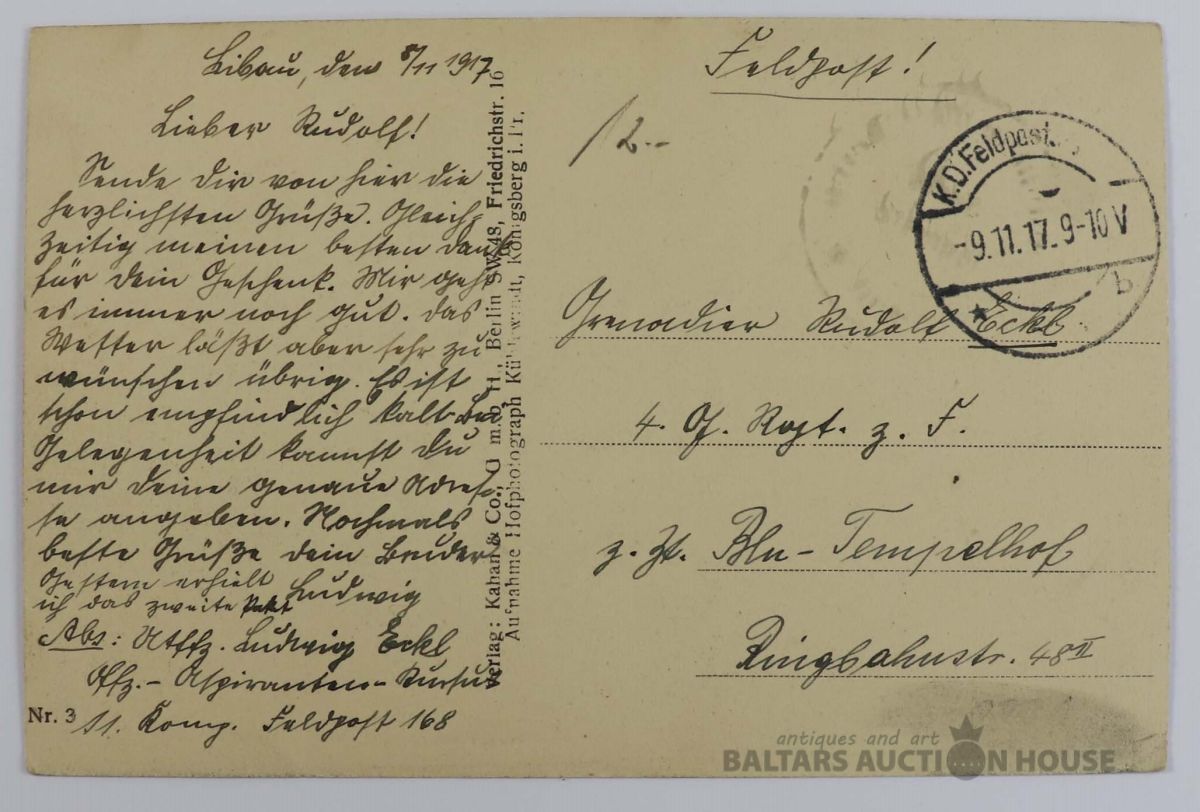 Libau, den 8/11 1917
Lieber Rudolf!
Sende Dir von hier die
herzlichsten Grüße. Gleich-
zeitig meinen besten Dank
für Dein Geschenk. Mir geht
es immer noch gut. Das
Wetter läßt aber sehr zu
wünschen übrig. Es ist
schon empfindlich kalt. Bei
Gelegenheit kannst Du
mir Deine genaue Adres-
se angeben. Nochmals
beste Grüße Dein Bruder
Ludwig
Gestern erhielt
ich das zweite Paket
Abs: Utffz. Ludwig Eckl
Offz.-Aspiranten-Kursus
11. Komp. Feldpost 168
Nr. 3
Verlag: Kahan & Co., G. m. b. H., Berlin SW 48, Friedrichstr. 16
Aufnahme Hofphotograph Königsberg i. Pr.
Feldpost!
12.-
K.D. Feldpost
-9.11.17.9-10V
* b
Grenadier Rudolf Eckl
4. G. Regt. z. F.
z. Zt. Bln-Tempelhof
Ringbahnstr. 48 II
antiques and art
BALTARS AUCTION HOUSE